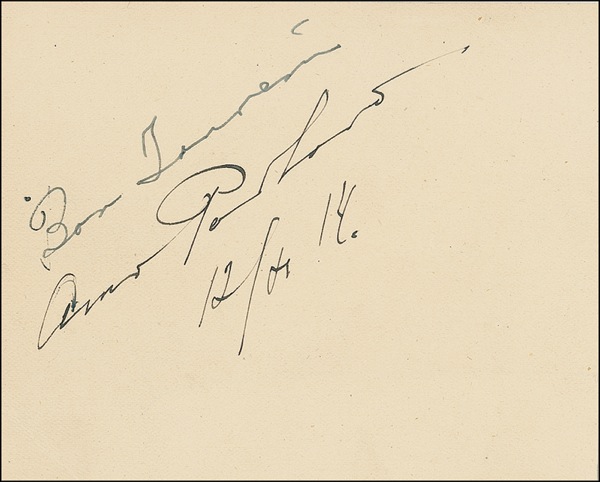 Bon Souvenir
Anna Pavlova
14.